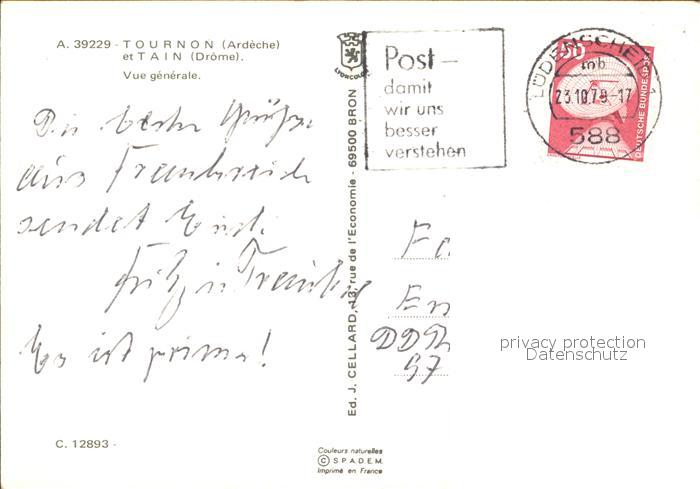 A. 39229 - TOURNON (Ardèche)
et TAIN (Drôme).
Vue générale.
Die besten Grüße
aus Frankreich
sendet Euch
Fritz u.
Es ist prima!
C. 12893 -
LYONCOLOR
Ed. J. CELLARD, 13, rue de l'Economie - 69500 BRON
Couleurs naturelles
© S.P.A.D.E.M.
Imprimé en France
Post –
damit
wir uns
besser
verstehen
LÜDENSCHEID
mb
23.10.79.-17
588
50
DEUTSCHE BUNDESPOST
Fa.
DDR
privacy protection
Datenschutz